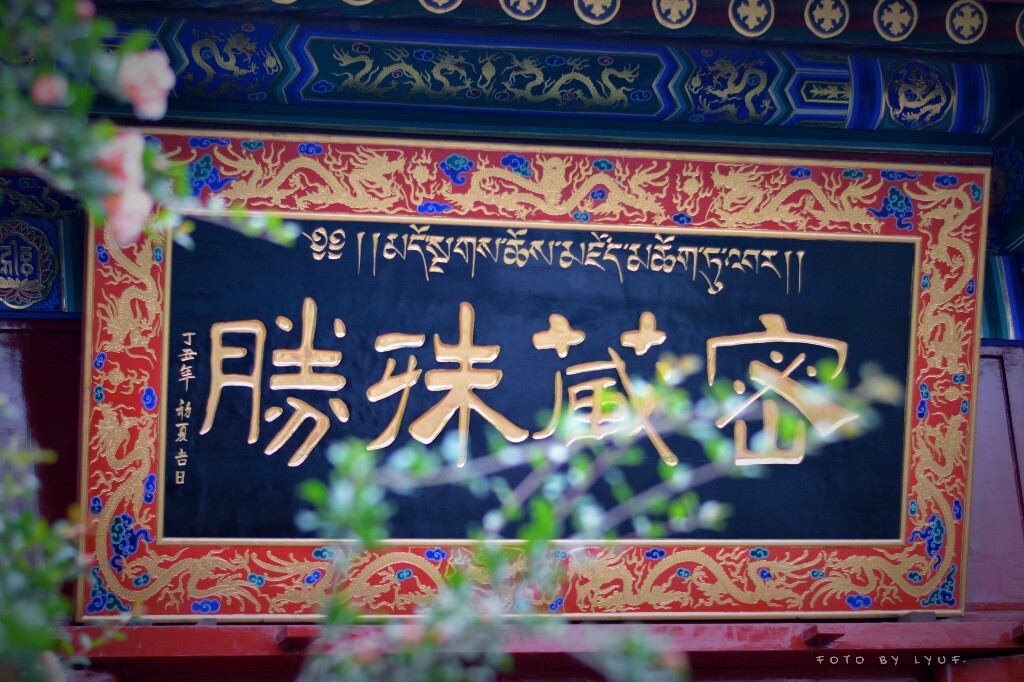 ༄༅།།མདོ་སྔགས་ཆོས་མཛོད་མཆོག་ཏུ་འབར།།
密藏殊勝
丁丑年初夏吉日
FOTO BY LYUF.